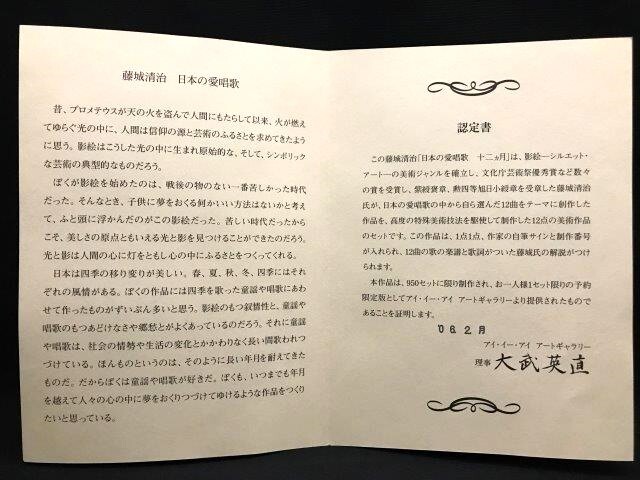 藤城清治　日本の愛唱歌
昔、プロメテウスが天の火を盗んで人間にもたらして以来、火が燃え
てゆらぐ光の中に、人間は信仰の源と芸術のふるさとを求めてきたよう
に思う。影絵はこうした光の中に生まれ原始的な、そして、シンボリック
な芸術の典型的なものだろう。
ぼくが影絵を始めたのは、戦後の物のない一番苦しかった時代
だった。そんなとき、子供に夢をおくる何かいい方法はないかと考え
て、ふと頭に浮かんだのがこの影絵だった。苦しい時代だったから
こそ、美しさの原点ともいえる光と影を見つけることができたのだろう。
光と影は人間の心に灯をともし心の中にふるさとをつくってくれる。
日本は四季の移り変りが美しい。春、夏、秋、冬、四季にはそれ
ぞれの風情がある。ぼくの作品には四季を歌った童謡や唱歌にあわ
せて作ったものがずいぶん多いと思う。影絵のもつ叙情性と、童謡や
唱歌のもつあどけなさや郷愁とがよくあっているのだろう。それに童謡
や唱歌は、社会の情勢や生活の変化とかかわりなく長い間歌われつ
づけている。ほんものというのは、そのように長い年月を耐えてきた
ものだ。だからぼくは童謡や唱歌が好きだ。ぼくも、いつまでも年月
を越えて人々の心の中に夢をおくりつづけてゆけるような作品をつくり
たいと思っている。
認定書
この藤城清治「日本の愛唱歌　十二ヵ月」は、影絵―シルエット・
アート―の美術ジャンルを確立し、文化庁芸術祭優秀賞など数々
の賞を受賞し、紫綬褒章、勲四等旭日小綬章を受章した藤城清治
氏が、日本の愛唱歌の中から自ら選んだ12曲をテーマに創作した
作品を、高度の特殊美術技法を駆使して制作した12点の美術作品
のセットです。この作品は、1点1点、作家の自筆サインと制作番号
が入れられ、12曲の歌の楽譜と歌詞がついた藤城氏の解説がつけ
られます。
本作品は、950セットに限り制作され、お一人様1セット限りの予約
限定版としてアイ・イー・アイ アートギャラリーより提供されたもので
あることを証明します。
'06.2.月
アイ・イー・アイ アートギャラリー
理事 大武英直